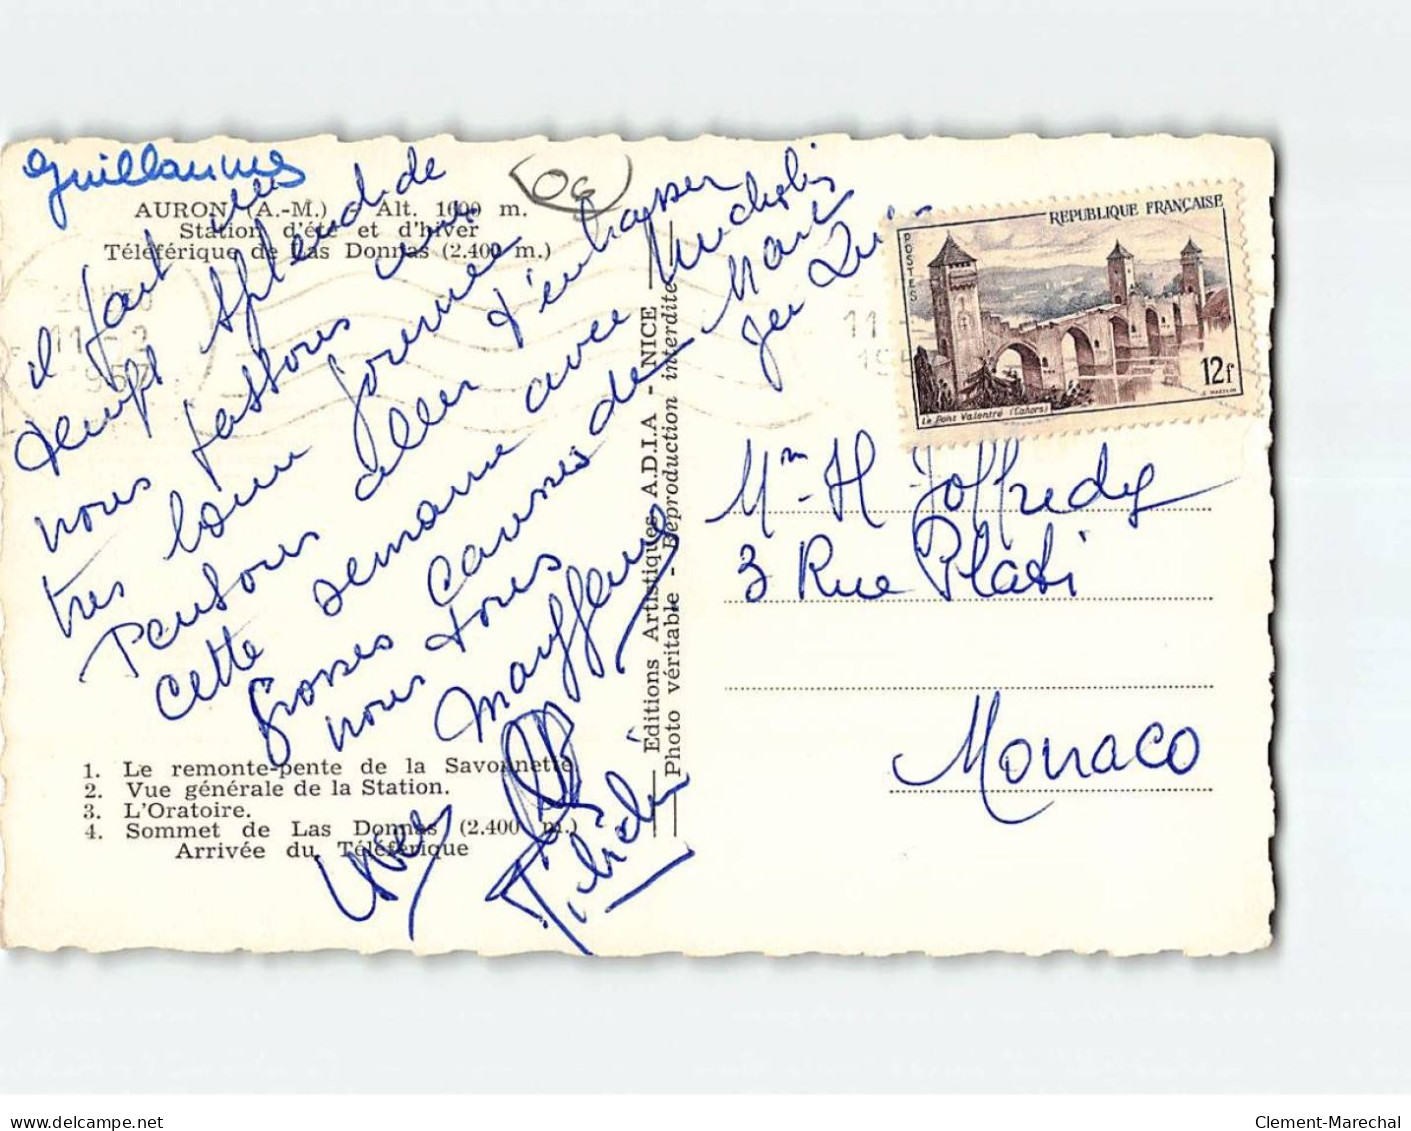 Guillaumes
AURON (A.-M.) - Alt. 1600 m.
Station d'été et d'hiver
Téléférique de Las Donnas (2.400 m.)
il fait un
temps splendide
nous passons une
très bonne journée
Pensons aller d'embrasser
cette semaine avec Michelin
Grosses Causses de
nous tous
1. Le remonte-pente de la Savonnette
2. Vue générale de la Station.
3. L'Oratoire.
4. Sommet de Las Donnas (2.400 m.)
Arrivée du Téléférique
Editions Artistiques A.D.I.A - NICE
Photo véritable - Reproduction interdite
REPUBLIQUE FRANÇAISE
POSTES
Le Pont Valentré (Cahors)
12f
11 - 2
1957
Mm H Joffredy
3 Rue Plati
Monaco
Clement-Marechal